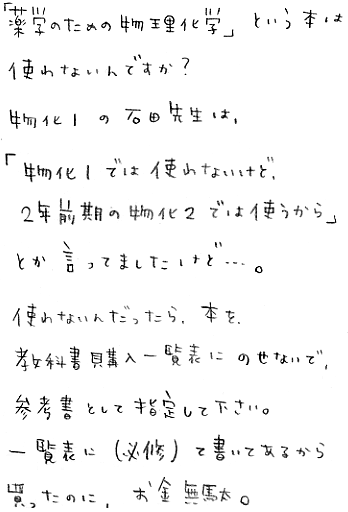 「薬学のための物理化学」という本は
使わないんですか？
物化1の石田先生は、
「物化1では使わないけど、
2年前期の物化2では使うから」
とか言ってましたけど…。
使わないんだったら、本を、
教科書購入一覧表にのせないで、
参考書として指定して下さい。
一覧表に(必修)て書いてあるから
買ったのに、お金無駄。